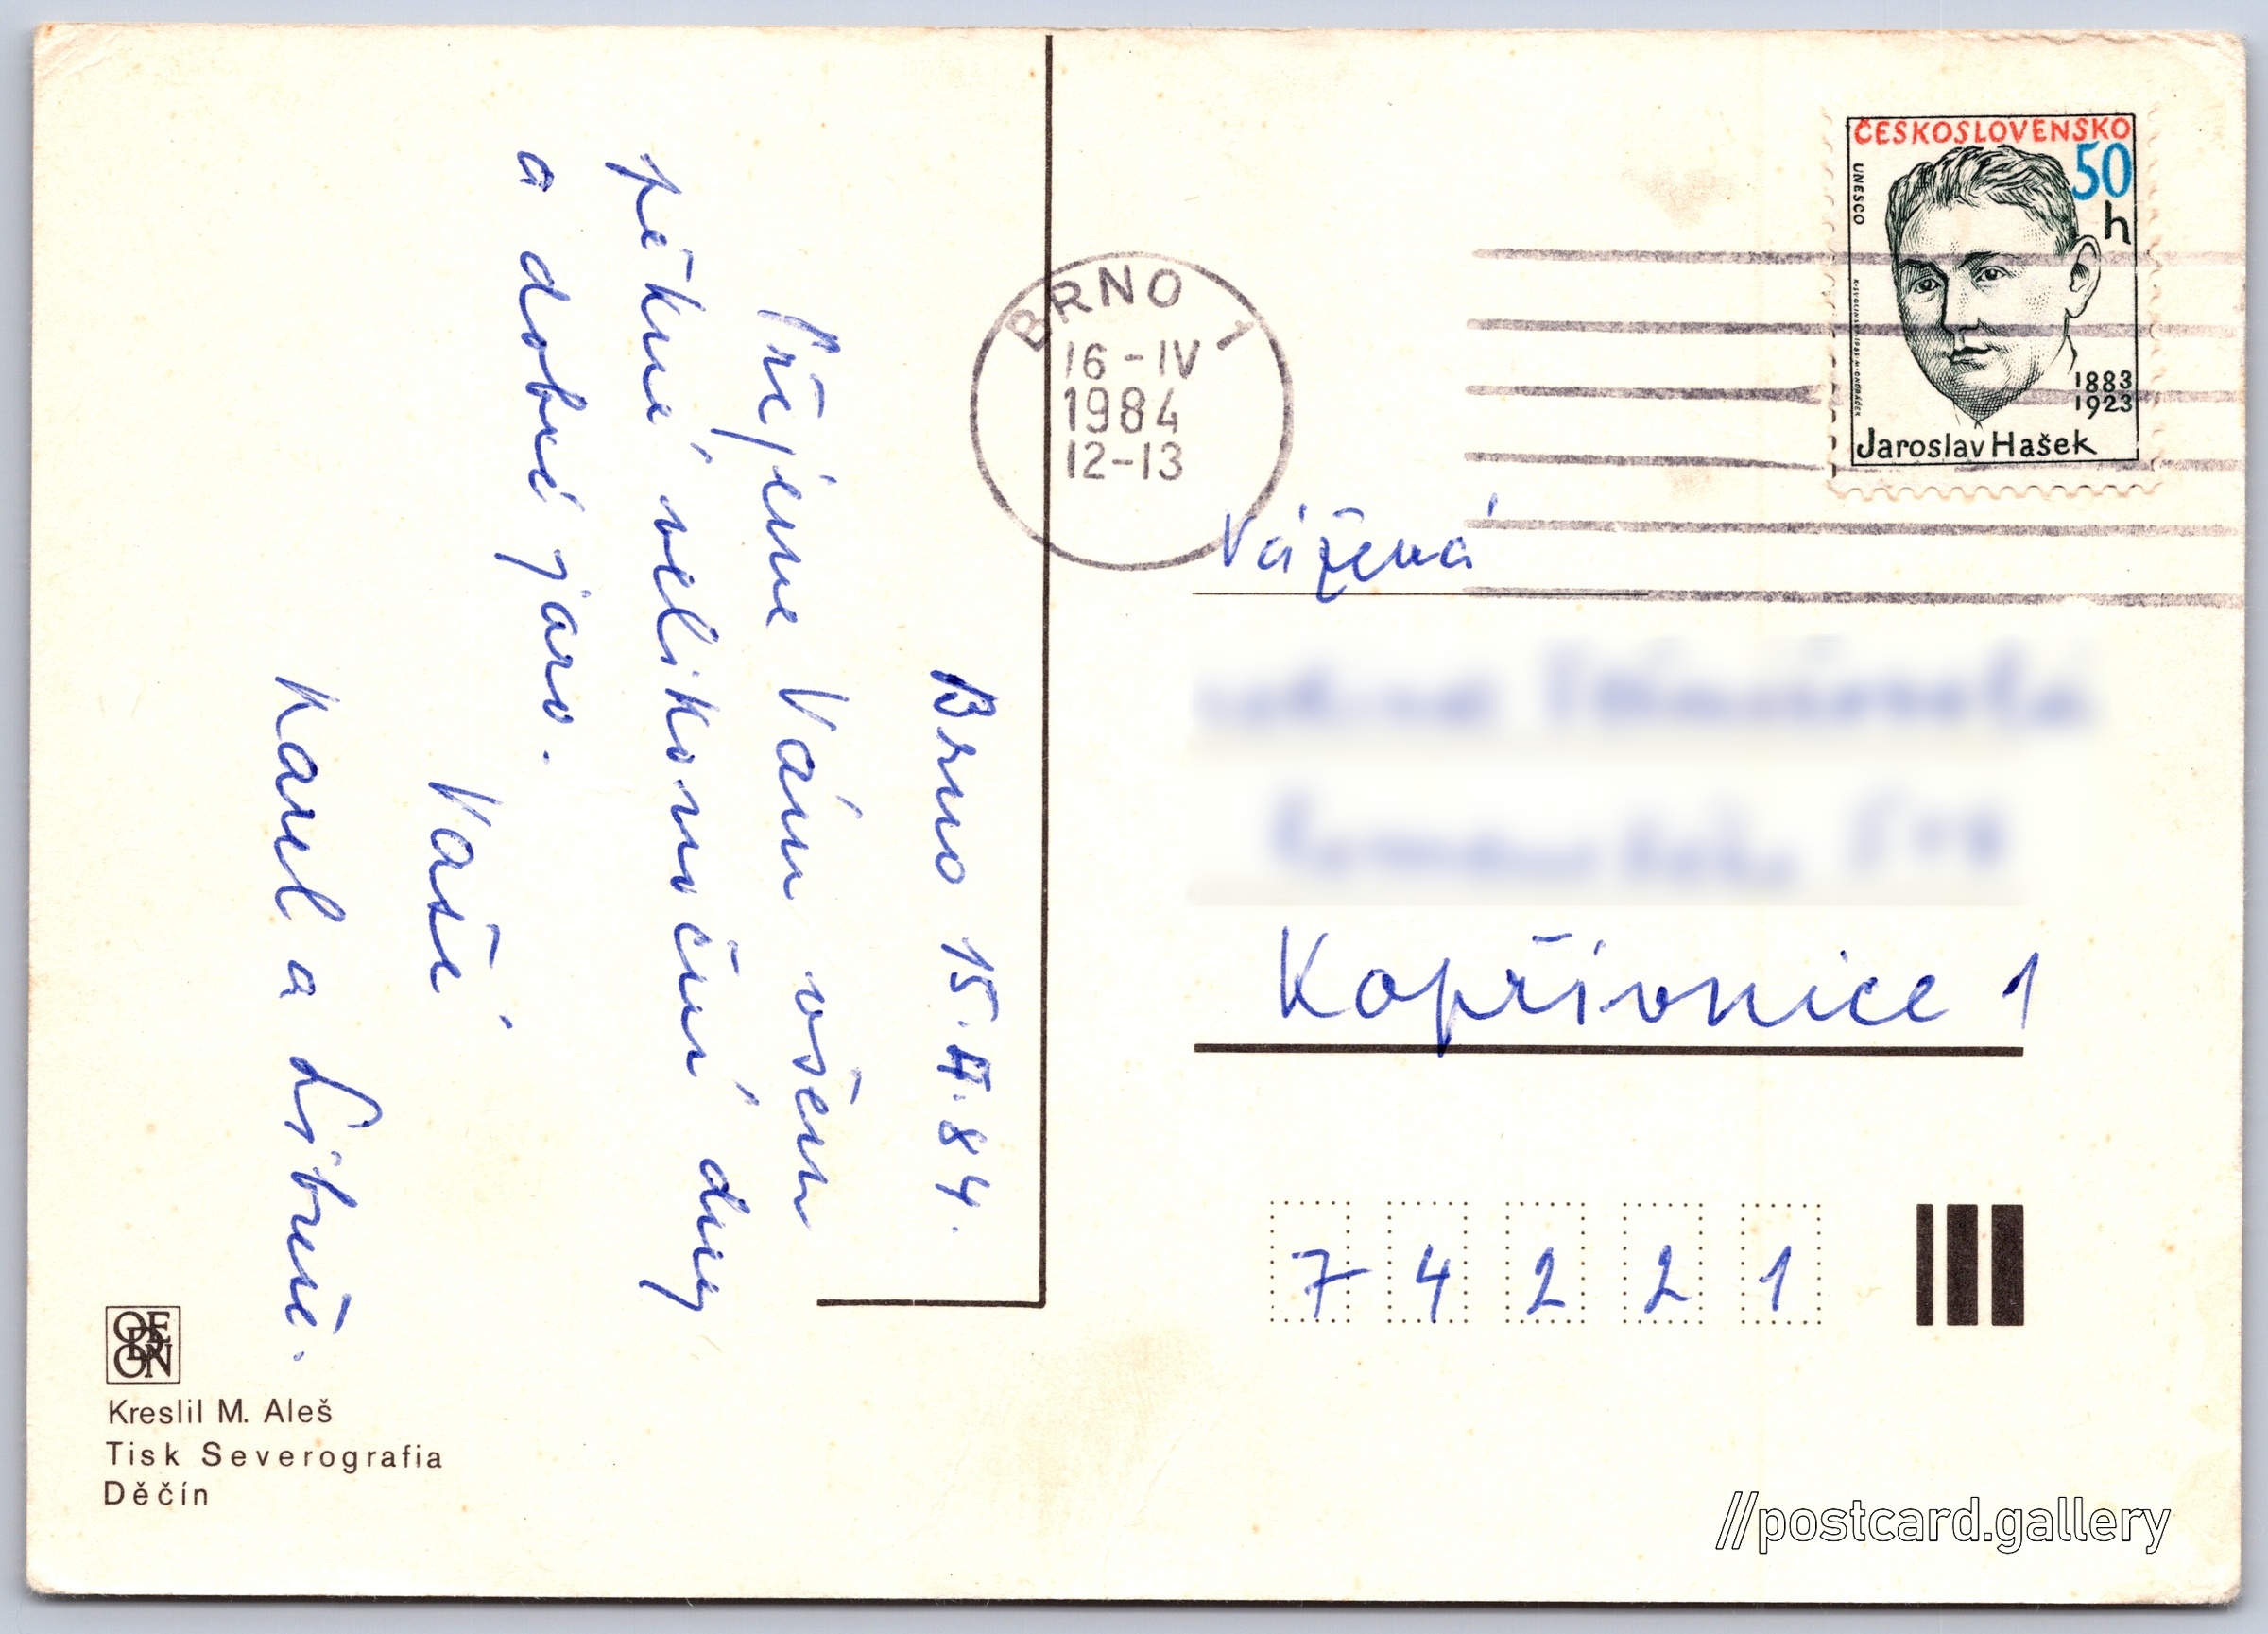 Brno 15.4.84.
Přejeme Vám všem
pěkné velikonoční dny
a dobré jaro.
Vaši
Karel a Libuše.
ODEON
Kreslil M. Aleš
Tisk Severografia
Děčín
BRNO 1
16-IV
1984
12-13
ČESKOSLOVENSKO
50
h
UNESCO
1883
1923
Jaroslav Hašek
Vážená
Kopřivnice 1
7 4 2 2 1
//postcard.gallery